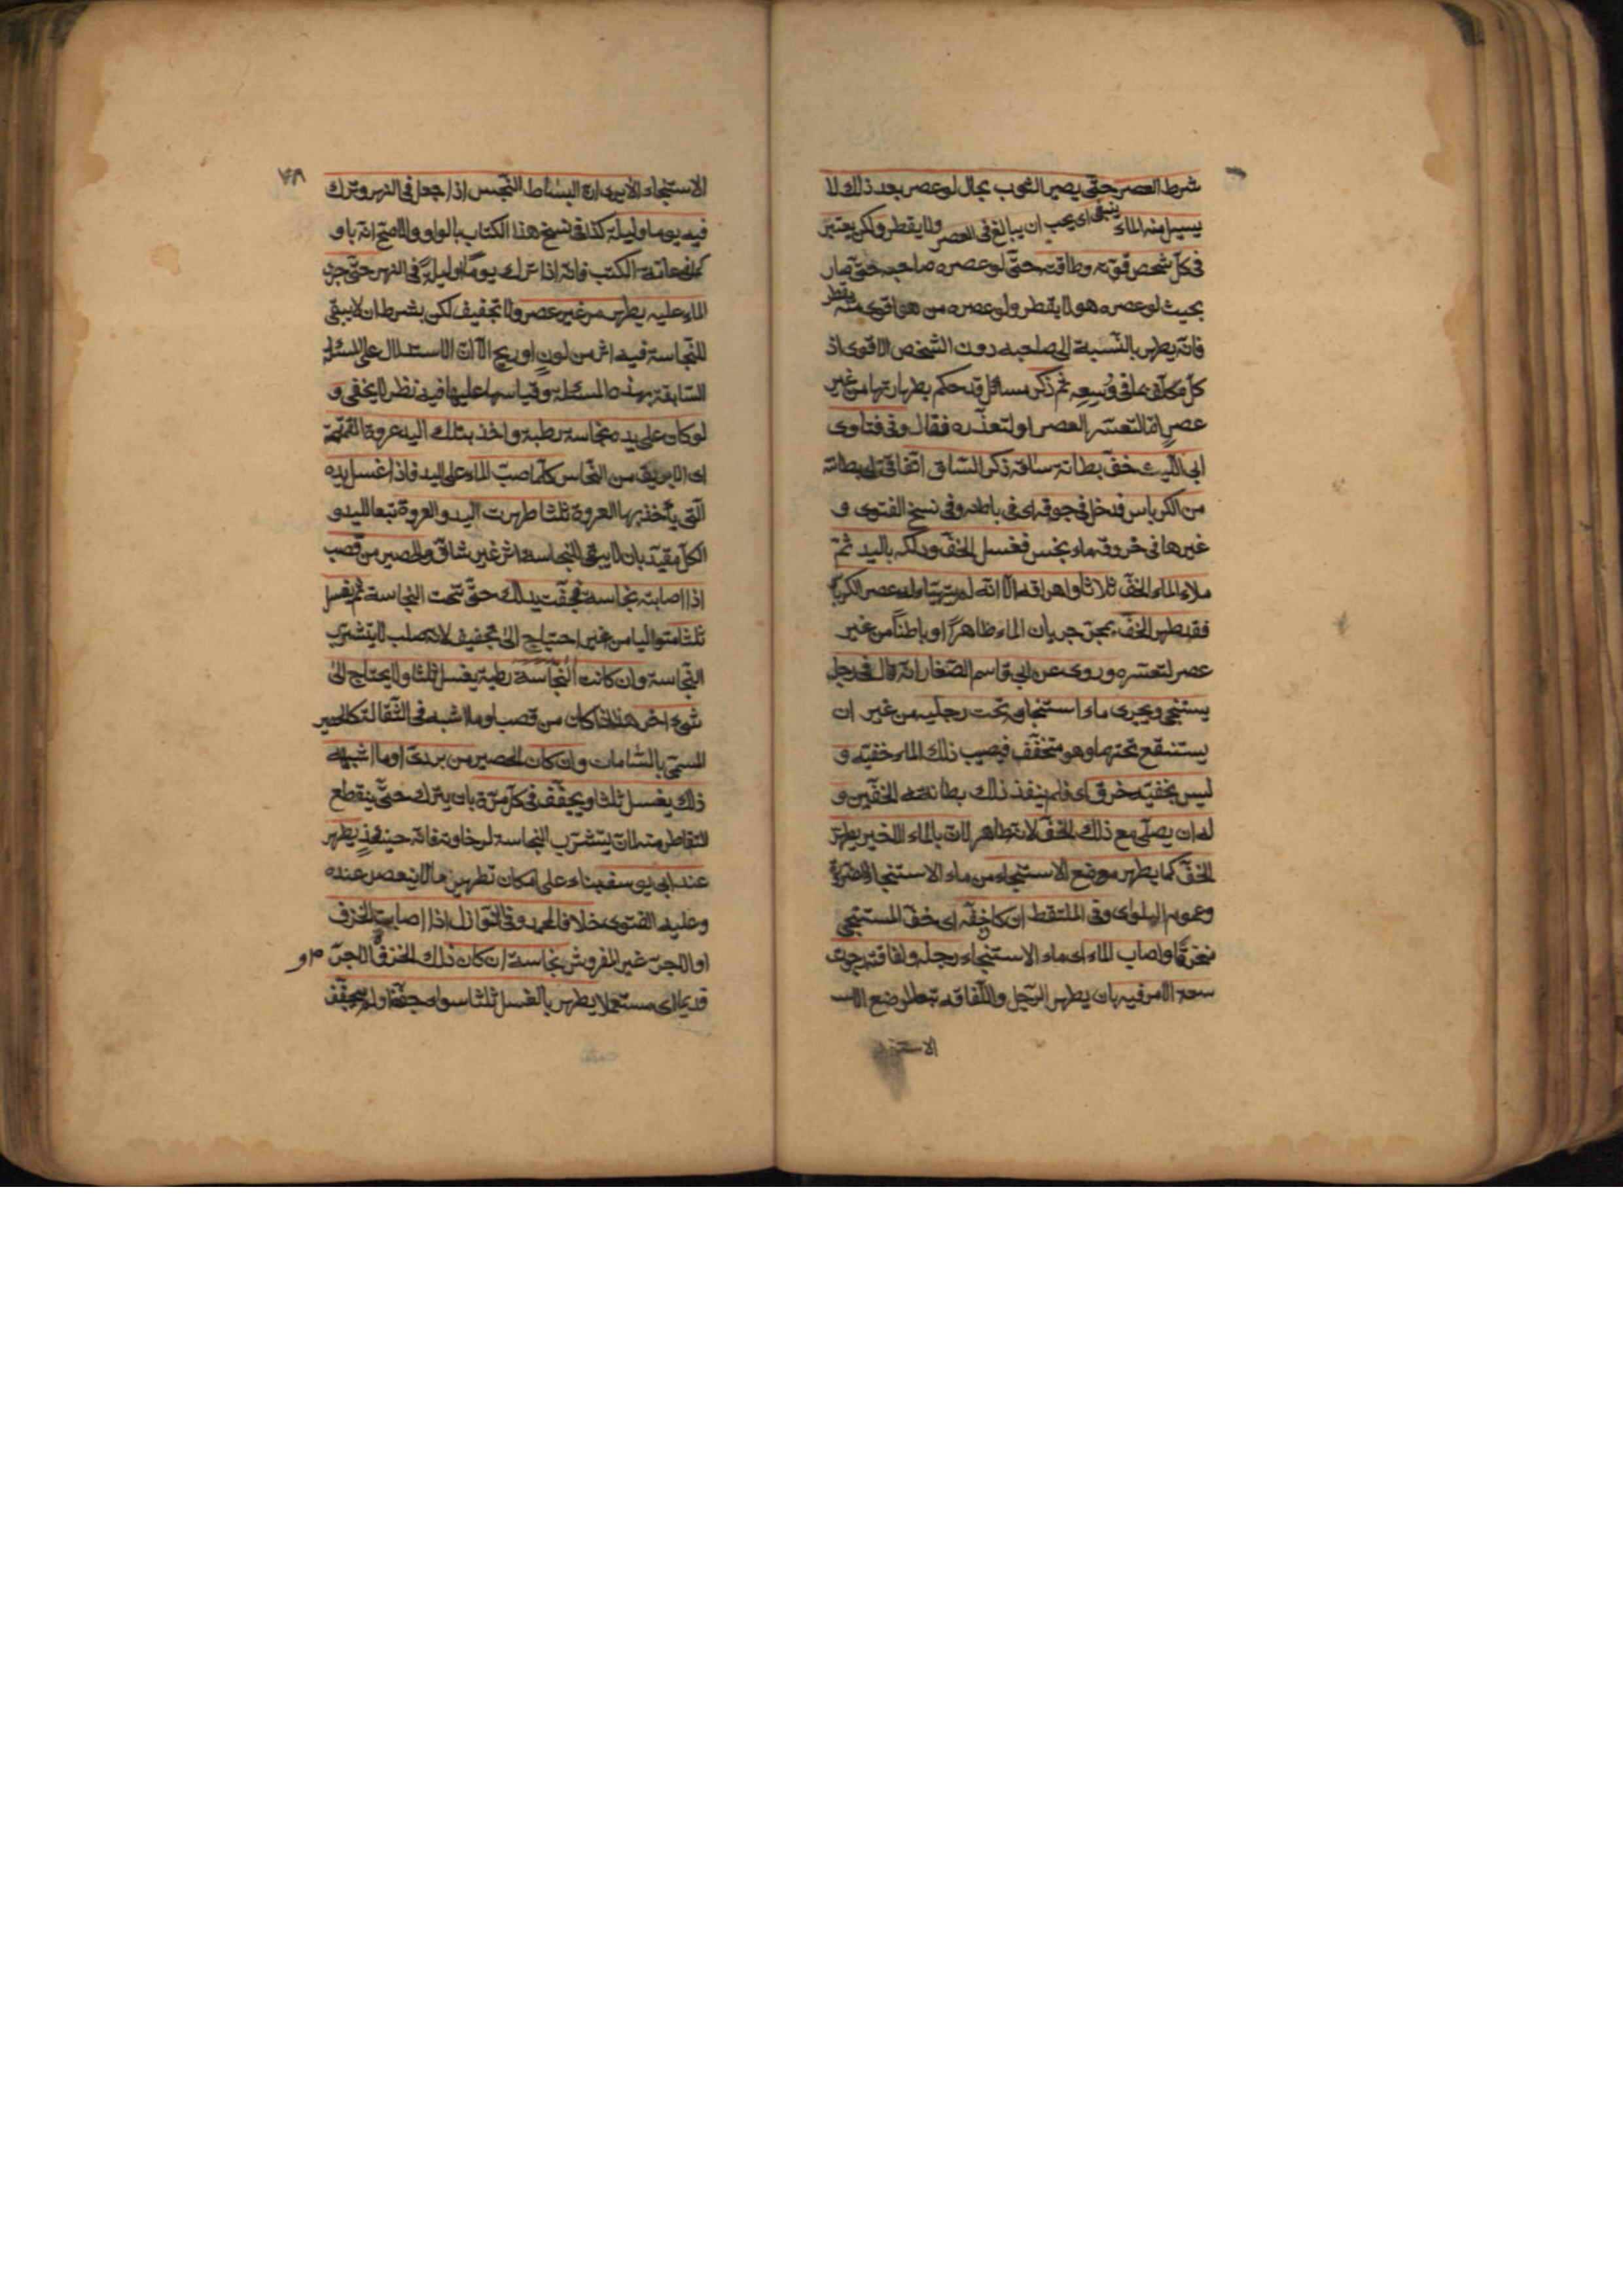 شرط العصر حتى يصير الثوب بحال لو عصر بعد ذلك لا
يسيل منه الماء ينبغي اى يجب ان يبالغ فى العصر ولا يقطر ولكن يعتبر
فى كل شخص قوته وطاقته حتى لو عصره صاحبه حتى صار
بحيث لو عصره هو لا يقطر ولو عصره من هو اقوى منه يقطر
فانه يطهر بالنسبة الى صاحبه دون الشخص الاقوى اذ
كل مكلف بما فى وسعه ثم ذكر مسائل قد حكم بطهارتها من غير
عصر اما لتعسر العصر او لتعذره فقال وفى فتاوى
ابى الليث خف بطانة ساقه ذكر الساق اتفاقى بطانته
من الكرباس فدخل فى جوفه اى فى باطنه وفى نسخ الفتوى و
غيرها فى خروقه ماء نجس فغسل الخف ودلكه باليد ثم
ملاء الماء الخف ثلاثا واهراقه الا انه لم يتهيأ له عصر الكرباس
فقد طهر الخف بمجرد جريان الماء ظاهرًا او باطنًا من غير
عصر لتعسره وروى عن ابى قاسم الصفار انه قال فى رجل
يستنجى ويجرى ماء استنجاؤه تحت رجليه من غير ان
يستنقع تحتهما وهو متخفف فيصيب ذلك الماء خفيه و
ليس بخفيه خرق اى فلم ينفذ ذلك بطانة الخفين و
له ان يصلى مع ذلك الخف لانه طاهر لان بالماء الاخير يطهر
الخف كما يطهر موضع الاستنجاء من ماء الاستنجاء للضرورة
وعموم البلوى وفى الملتقط ان كان خفه اى خف المستنجى
منخرقًا واصاب الماء اى ماء الاستنجاء رجله ولفافته رجوت
سعة الامر فيه بان يطهر الرجل واللفافة تبعا لموضع الاسـ
الاستنجاء
٧٨
الاستنجاء الا يرى ان البساط النجس اذا جعل فى النهر وترك
فيه يوما وليلة كذا فى نسخ هذا الكتاب بالواو والاصح انه باو
كما فى عامة الكتب فانه اذا ترك يومًا او ليلةً فى النهر حتى جرى
الماء عليه يطهر من غير عصر ولا تجفيف لكن بشرط ان لا يبقى
للنجاسة فيه اثر من لونٍ او ريح الا ان الاستدلال على المسئلة
السابقة بهذه المسئلة وقياسها عليها فيه نظر لا يخفى و
لو كان على يده نجاسة رطبة واخذ بتلك اليد عروة القمقمة
اى الابريق من النحاس كلما صب الماء على اليد فاذا غسل يده
التى يأخذ بها العروة ثلثا طهرت اليد والعروة تبعا لليد و
الكل مقيد بان لا يبقى للنجاسة اثر غير شاق والحصير من قصب
اذا اصابته نجاسة فجفت يدلك حتى تحت النجاسة ثم يغسل
ثلثا متواليا من غير احتياج الى تجفيف لانه صلب لا يتشرب
النجاسة وان كانت النجاسة رطبة يغسل ثلثا ولا يحتاج الى
شىء اخر هذا اذا كان من قصب او ما اشبه فى الثقالة كالحصير
المسمى بالشامات وان كان الحصير من بردى او ما اشبه
ذلك يغسل ثلثا ويجفف فى كل مرة بان يترك حتى ينقطع
التقاطر منه لان يتشرب النجاسة لرخاوته فانه حينئذٍ يطهر
عند ابى يوسف بناء على امكان تطهير ما لا ينعصر عنده
وعليه الفتوى خلافا لمحمد وفى النوازل اذا اصابت الخزف
او الاجر غير المفروش نجاسة ان كان ذلك الخزف والاجر
قديما اى مستعملا يطهر بالغسل ثلثا سواء جففه او لم يجفف